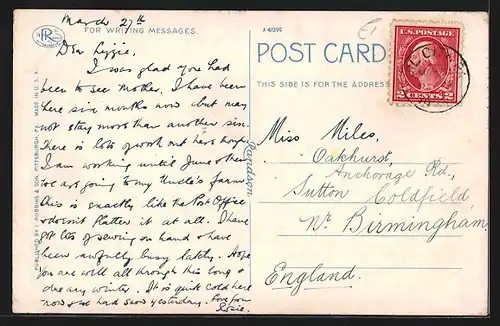 March 27th
FOR WRITING MESSAGES.
Dear Lizzie,
I was glad you had
been to see Mother. I have been
here six months now but may
not stay more than another six.
There is lots of work out here tho.
I am working until June & then
we are going to my Uncle's farm
this is exactly like the Post Office
& doesn't flatter it at all. I have
got lots of sewing on hand & have
been awfully busy lately. Hope
you are well all through this long &
dreary winter. It is quite cold here
now & we had snow yesterday. Love from
Rosie.
MADE IN U.S.A.
PUBLISHED BY I. ROBBINS & SON, PITTSBURGH, PA.
A-61290
POST CARD
THIS SIDE IS FOR THE ADDRESS
U.S. POSTAGE
2 CENTS 2
Miss Miles,
Oakhurst,
Anchorage Rd.,
Sutton Coldfield,
Nr. Birmingham,
England.